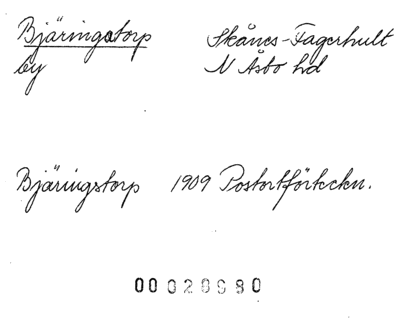 Bjäringstorp Skånes-Fagerhult
by N Åsbo hd
Bjäringstorp 1909 Postortförteckn.